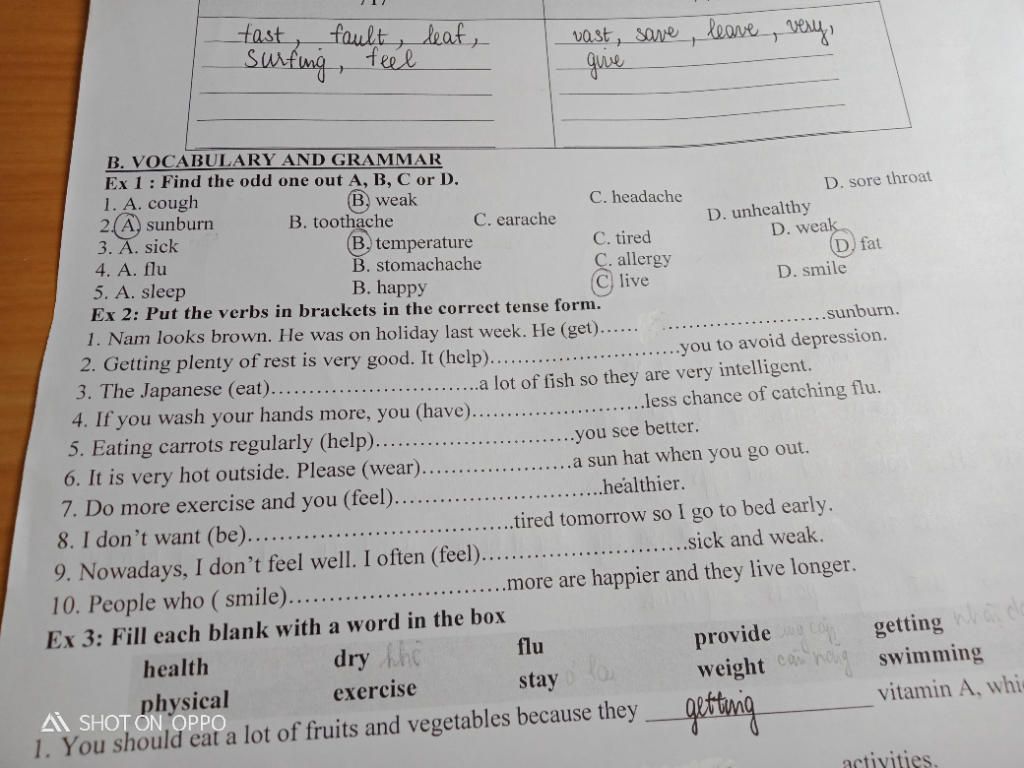 fast, fault, leaf, vast, save, leave, very,
surfing, feel give
B. VOCABULARY AND GRAMMAR
Ex 1 : Find the odd one out A, B, C or D.
1. A. cough B. weak C. headache D. sore throat
2. A. sunburn B. toothache C. earache D. unhealthy
3. A. sick B. temperature C. tired D. weak
4. A. flu B. stomachache C. allergy D. fat
5. A. sleep B. happy C. live D. smile
Ex 2: Put the verbs in brackets in the correct tense form.
1. Nam looks brown. He was on holiday last week. He (get)...... ..............................sunburn.
2. Getting plenty of rest is very good. It (help)..................................you to avoid depression.
3. The Japanese (eat)......................................a lot of fish so they are very intelligent.
4. If you wash your hands more, you (have)................................less chance of catching flu.
5. Eating carrots regularly (help)....................................you see better.
6. It is very hot outside. Please (wear)...........................a sun hat when you go out.
7. Do more exercise and you (feel)......................................healthier.
8. I don't want (be)................................................tired tomorrow so I go to bed early.
9. Nowadays, I don't feel well. I often (feel).....................................sick and weak.
10. People who ( smile).......................................more are happier and they live longer.
Ex 3: Fill each blank with a word in the box
health dry khô flu provide cung cấp getting
physical exercise stay weight cân nặng swimming
1. You should eat a lot of fruits and vegetables because they getting vitamin A,
activities.
SHOT ON OPPO